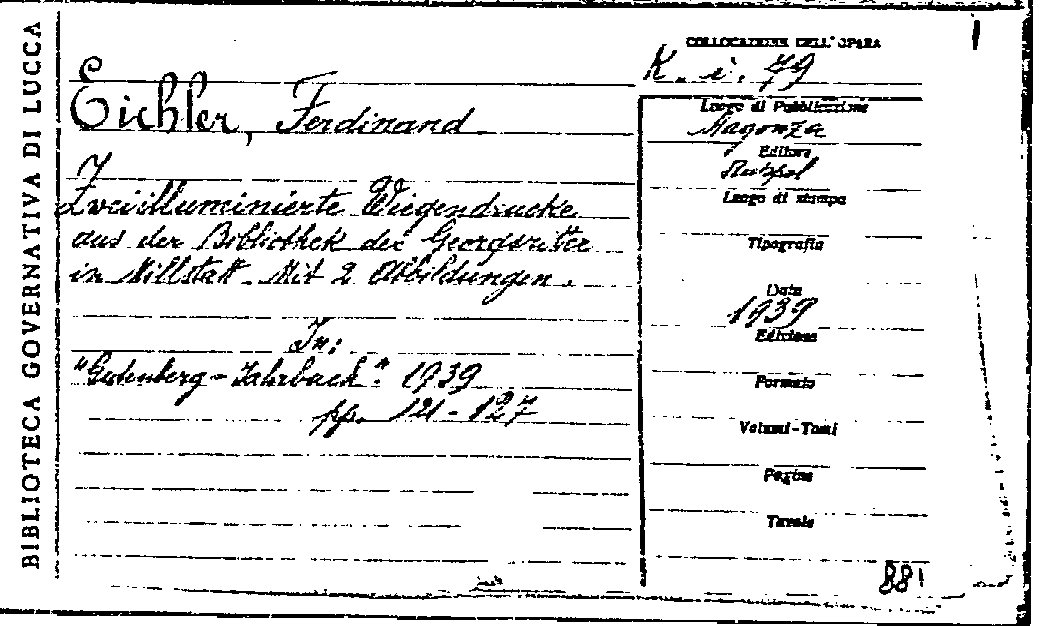 BIBLIOTECA GOVERNATIVA DI LUCCA
Eichler, Ferdinand
Zwei illuminierte Wiegendrucke
aus der Bibliothek der Georgsritter
in Millstatt. Mit 2 Abbildungen.
In:
"Gutenberg-Jahrbuch". 1939
pp. 121-127
COLLOCAZIONE DELL'OPERA
K. i. 79
Luogo di Pubblicazione
Magonza
Editore
Luogo di stampa
Tipografia
Data
1939
Edizione
Formato
Volumi-Tomi
Pagine
Tavole
881